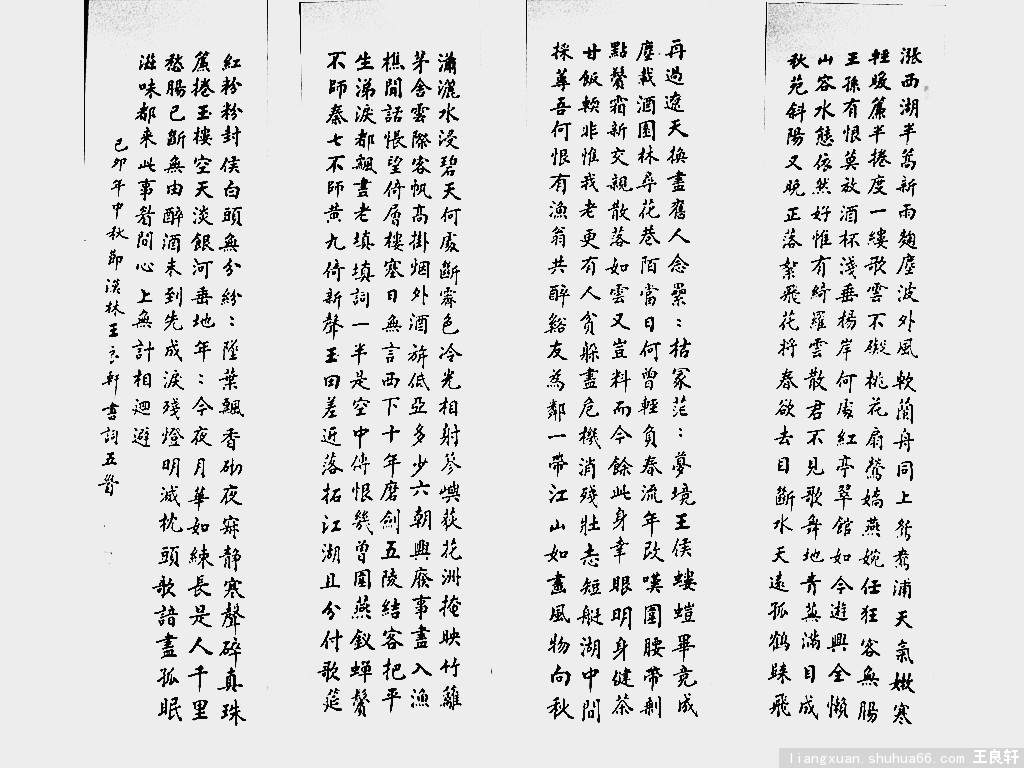 漲西湖半篙新雨麹塵波外風軟蘭舟同上鴛鴦浦天氣嫩寒
輕暖簾半捲度一縷歌雲不礙桃花扇鶯嬌燕婉任狂客無腸
王孫有恨莫放酒杯淺垂楊岸何處紅亭翠館如今遊興全懶
山容水態依然好惟有綺羅雲散君不見歌舞地青蕪滿目成
秋苑斜陽又晚正落絮飛花將春欲去目斷水天遠孤鶴歸飛
再過遼天換盡舊人念纍:枯冢茫:夢境王侯螻螘畢竟成
塵載酒園林尋花巷陌當日何曾輕負春流年改嘆圍腰帶剩
點鬢霜新交親散落如雲又豈料而今餘此身幸眼明身健茶
甘飯軟非惟我老更有人貧躲盡危機消殘壯志短艇湖中閒
採蓴吾何恨有漁翁共醉谿友為鄰一帶江山如畫風物向秋
瀟灑水浸碧天何處斷霽色冷光相射蓼嶼荻花洲掩映竹籬
茅舍雲際客帆高掛烟外酒旆低亞多少六朝興廢事盡入漁
樵閒話悵望倚層樓寒日無言西下十年磨劍五陵結客把平
生涕淚都飄盡老填填詞一半是空中傳恨幾曾圍燕釵蟬鬢
不師秦七不師黃九倚新聲玉田差近落拓江湖且分付歌筵
紅粉粉封侯白頭無分紛:墜葉飄香砌夜寂靜寒聲碎真珠
簾捲玉樓空天淡銀河垂地年:今夜月華如練長是人千里
愁腸已斷無由醉酒未到先成淚殘燈明滅枕頭歌諳盡孤眠
滋味都來此事眉間心上無計相迴避
己卯年中秋節林王良軒書詞五
liangxuan.shuhua66.com 王良轩